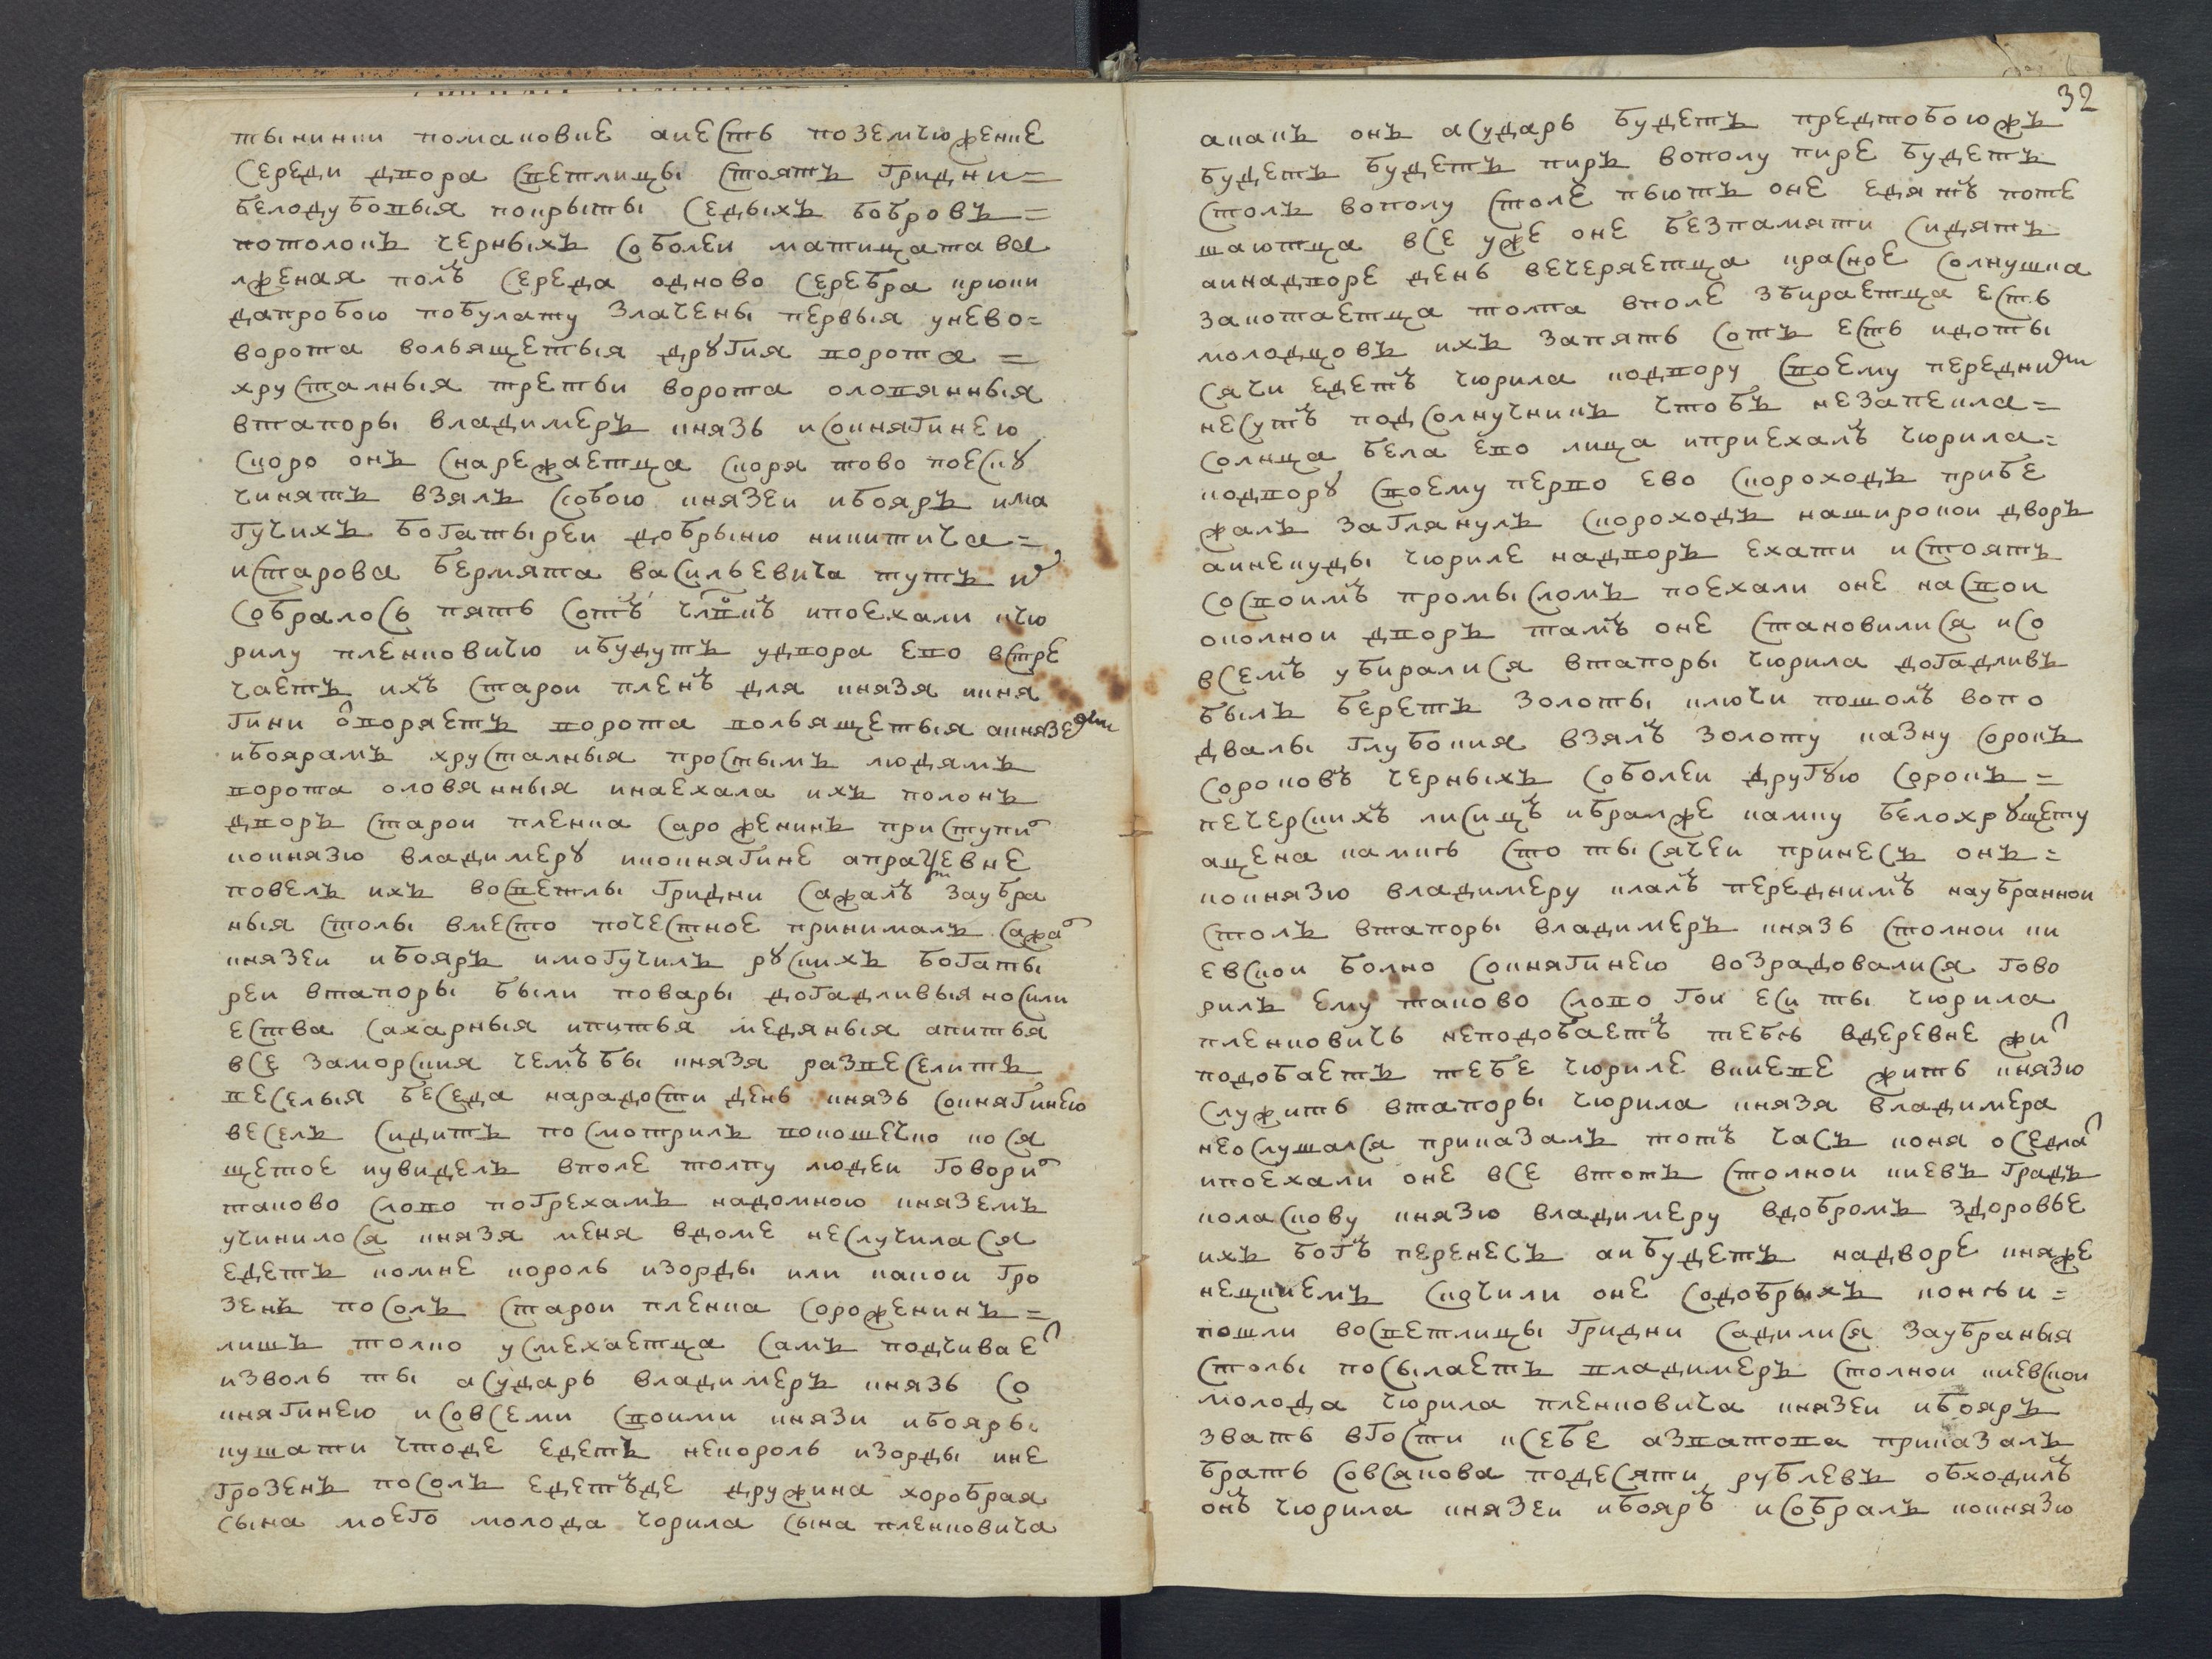 тынинки помаковке аиесть поземчюженке
Середи двора светлицы стоятъ гридни=
белодубовыя покрыты седыхъ бобровъ=
потолокъ черныхъ соболеи матицатава
лженая полъ середа одново серебра крюки
дапробою побулату злачены первыя унево=
ворота вольящетыя другия ворота =
хрусталныя третьи ворота оловянныя
втапоры владимеръ князь исокнягинею
скоро онъ снарежаетца скоря тово поеску
чинятъ взялъ собою князеи ибояръ има
гучихъ богатыреи добрыню никитича=
истарова бермята васильевича тутъ их
собралось пять сотъ члвкъ ипоехали кчю
рилу пленковичю ибудутъ удвора ево встре
чаетъ ихъ старои пленъ для князя икня
гини отворяетъ ворота вольящетыя акнязем
ибоярамъ хрусталныя простымъ людямъ
ворота оловянныя инаехала ихъ полонъ
дворъ старои пленка сароженинъ приступил
кокнязю владимеру икокнягине апраксевне
повелъ ихъ восветлы гридни сажалъ заубра
ныя столы вместо почестное принималъ сажал
князеи ибояръ имогучихъ рускихъ богаты
реи втапоры были повары догадливыя носили
ества сахарныя ипитья медяныя апитья
все заморския чемъбы князя развеселитъ
веселыя беседа нарадости день князь сокнягинею
веселъ сидитъ посмотрилъ вокошечко кося
щетое иувиделъ вполе толпу людеи говорил
таково слово погрехамъ надомною князем
учинилося князя меня вдоме неслучилася
едетъ комне король изорды или какои гро
зенъ посолъ старои пленка сороженинъ=
лишъ толко усмехаетца самъ подчивает
изволь ты асударь владимеръ князь со
княгинею исовсеми своими князи ибояры
кушати чтоде едетъ некороль изорды ине
грозенъ посолъ едетъде дружина хоробрая
сына моего молода чорила сына пленковича
32
акакъ онъ асударь будетъ предтобоюжъ
будетъ будетъ пиръ вополу пире будетъ
столъ вополу столе пьютъ оне едятъ поте
шаютца все уже оне безпамяти сидятъ
аинадворе день вечеряетца красное солнушка
закотаетца толпа вполе збираетца есть
молодцовъ ихъ запять сотъ есть идоты
сячи едетъ чюрила кодвору своему переднимъ
несутъ подсолнучникъ чтобъ незапекла=
солнца бела ево лица иприехалъ чюрила=
кодвору своему перво ево скороходъ прибе
жалъ заглянулъ скороходъ наширокои дворъ
аинекуды чюриле надворъ ехати истоятъ
сосвоимъ промысломъ поехали оне насвои
околнои дворъ тамъ оне становилися исо
всемъ убиралися втапоры чюрила догадливъ
былъ беретъ золоты ключи пошолъ вопо
двалы глубокия взялъ золоту казну сорокъ
сороковъ черныхъ соболеи другую сорокъ=
печерскихъ лисицъ ибралже камку белохрущету
ацена камкѣ сто тысячеи принесъ онъ=
кокнязю владимеру клалъ переднимъ наубраннои
столъ втапоры владимеръ князь столнои ки
евскои болно сокнягинею возрадовалися гово
рилъ ему таково слово гои еси ты чюрила
пленковичъ неподобаетъ тебѣ вдеревне жит
подобаетъ тебе чюриле вкиеве жить князю
служить втапоры чюрила князя владимера
неослушался приказалъ тотъ часъ коня оседлат
ипоехали оне все втотъ столнои киевъ градъ
коласкову князю владимеру вдобромъ здоровье
ихъ богъ перенесъ аибудетъ надворе княже
нецкиемъ скочили оне содобрыхъ конѣи=
пошли восветлицы гридни садилися заубраныя
столы посылаетъ владимеръ столнои киевскои
молода чюрила пленковича князеи ибояръ
звать вгости ксебе азватова приказалъ
брать совсякова подесяти рублевъ обходилъ
онъ чюрила князеи ибояръ исобралъ кокнязю